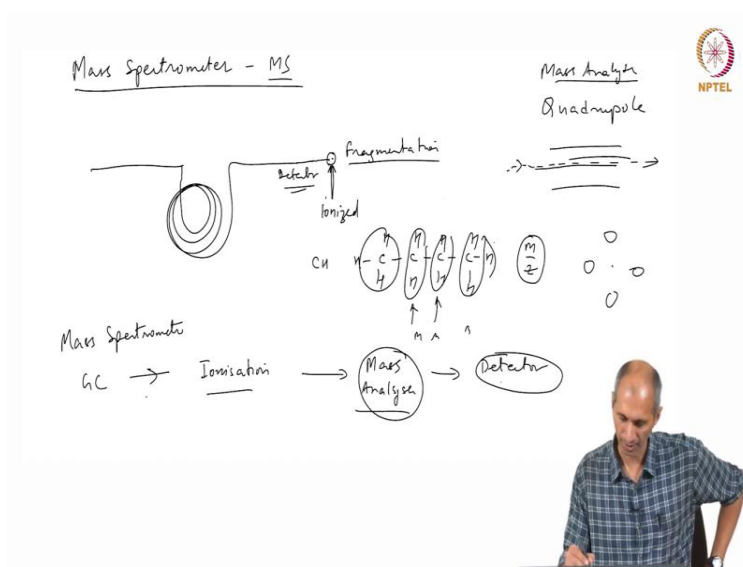 Mass Spectrometer - MS
Mass Analyser
NPTEL
Quadrupole
Fragmentation
Detector
Ionized
CH H-C-C-C-C-H
H H H H
H H H H
m/z
Mass Spectrometer
GC → Ionisation → Mass Analyser → Detector